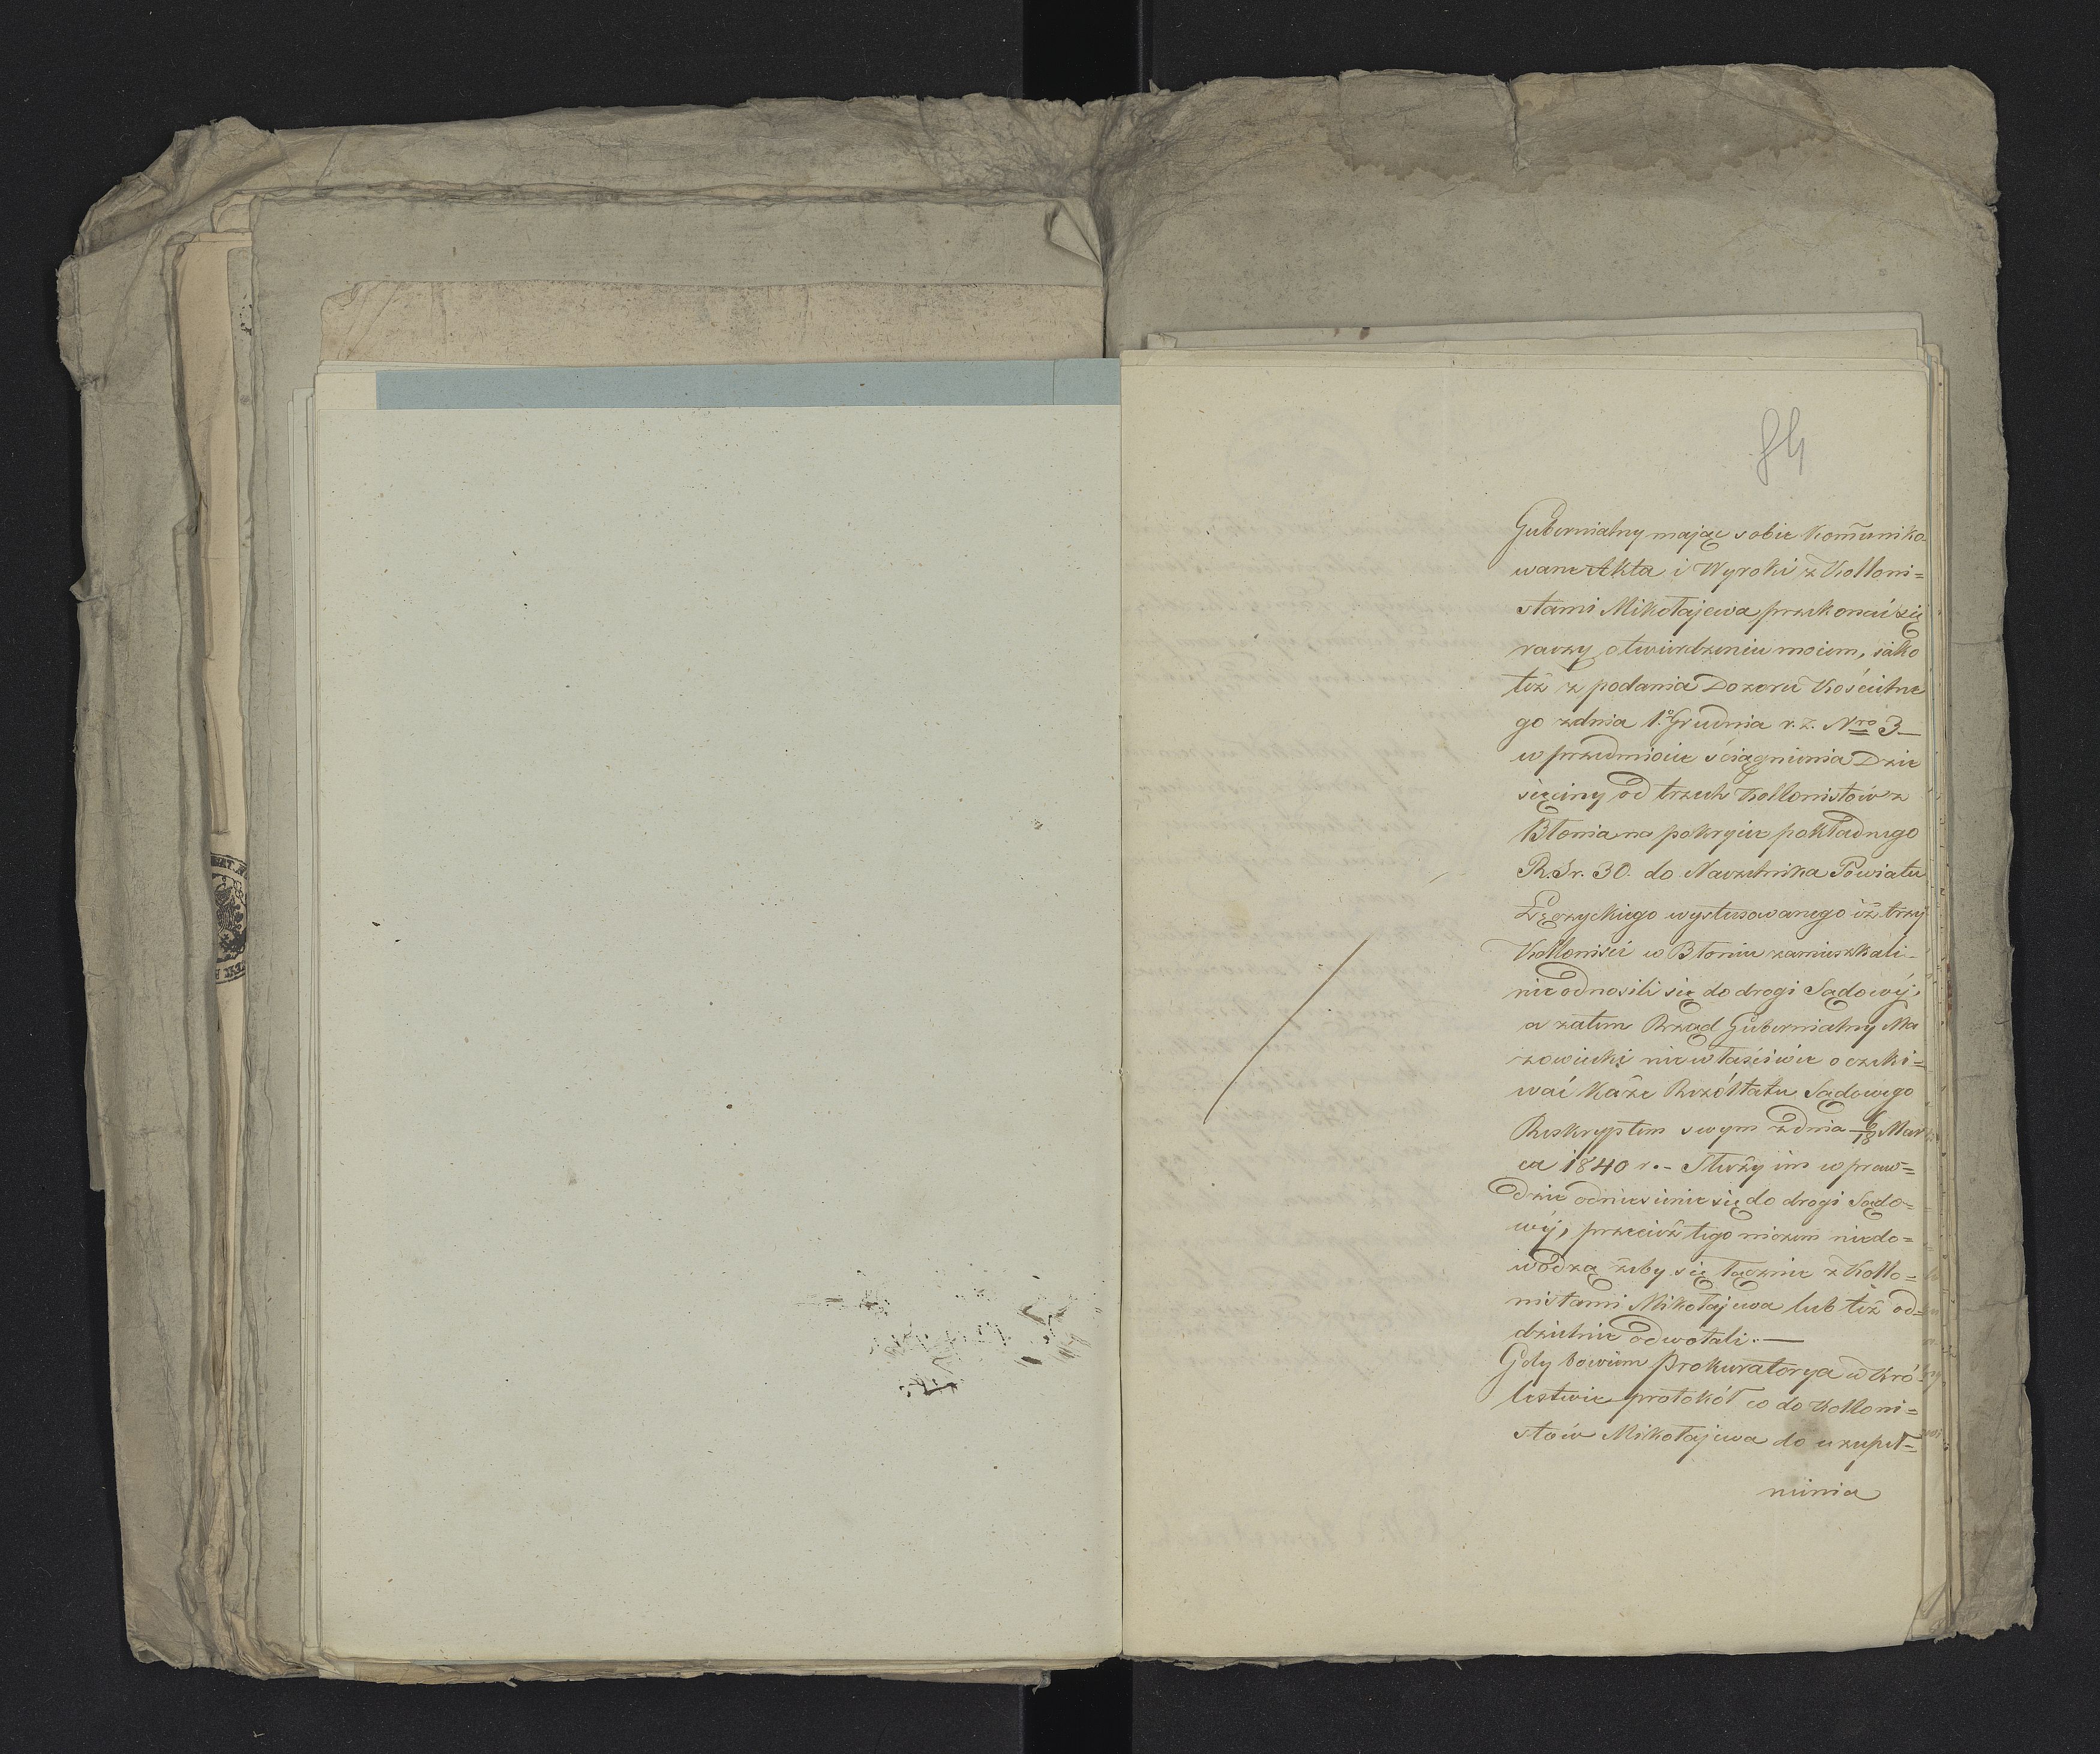 84
Gubernialny mając sobie Kom̄uniko-
wane Akta i Wyroki z Kolloni=
stami Mikołajewa przekonać się
raczy o twierdzeniu moiem, jako
też z podania Dozoru Kościelne
go zdnia 1º Grudnia r. z. Nro 3
w przedmiocie ściągnienia Dzie
sięciny od trzech Kollonistów z
Błonia na pokrycie pokładnego
R. Sr. 30. do Naczelnika Powiatu
Łęczyckiego wystosowanego iż trzy
Kolloniści w Błoniu zamieszkali
nie odnosili się do drogi Sądowéj,
a zatem Rząd Gubernialny Ma
zowiecki niewłaściwie oczeki=
wać każe Rezóltatu Sądowego
Reskryptem swym zdnia 6/18 Mar
ca 1840 r. - Służy im wpraw=
dzie odniesienie się do drogi Sądo=
wéj, przecież tego niczem niedo=
wodzą żeby się łącznie z Kollo=
nistami Mikołajewa lub też od=
dzielnie odwołali. —
Gdy bowiem Prokuratorya w Kró-
lestwie protokół co do Kolloni=
stów Mikołajewa do uzupeł=
nienia